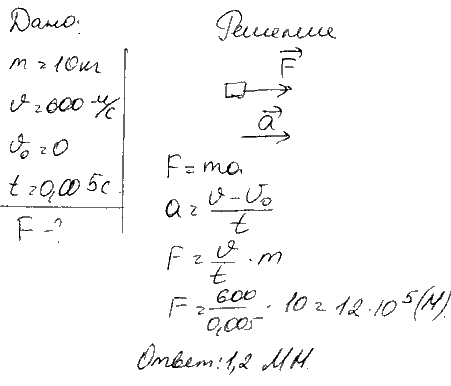 Дано:
m = 10 кг
v = 600 м/с
v₀ = 0
t = 0,005 с
F - ?
Решение
F⃗
a⃗
F = ma
a = (v - v₀)/t
F = v/t · m
F = 600/0,005 · 10 = 12 · 10⁵ (Н).
Ответ: 1,2 МН.